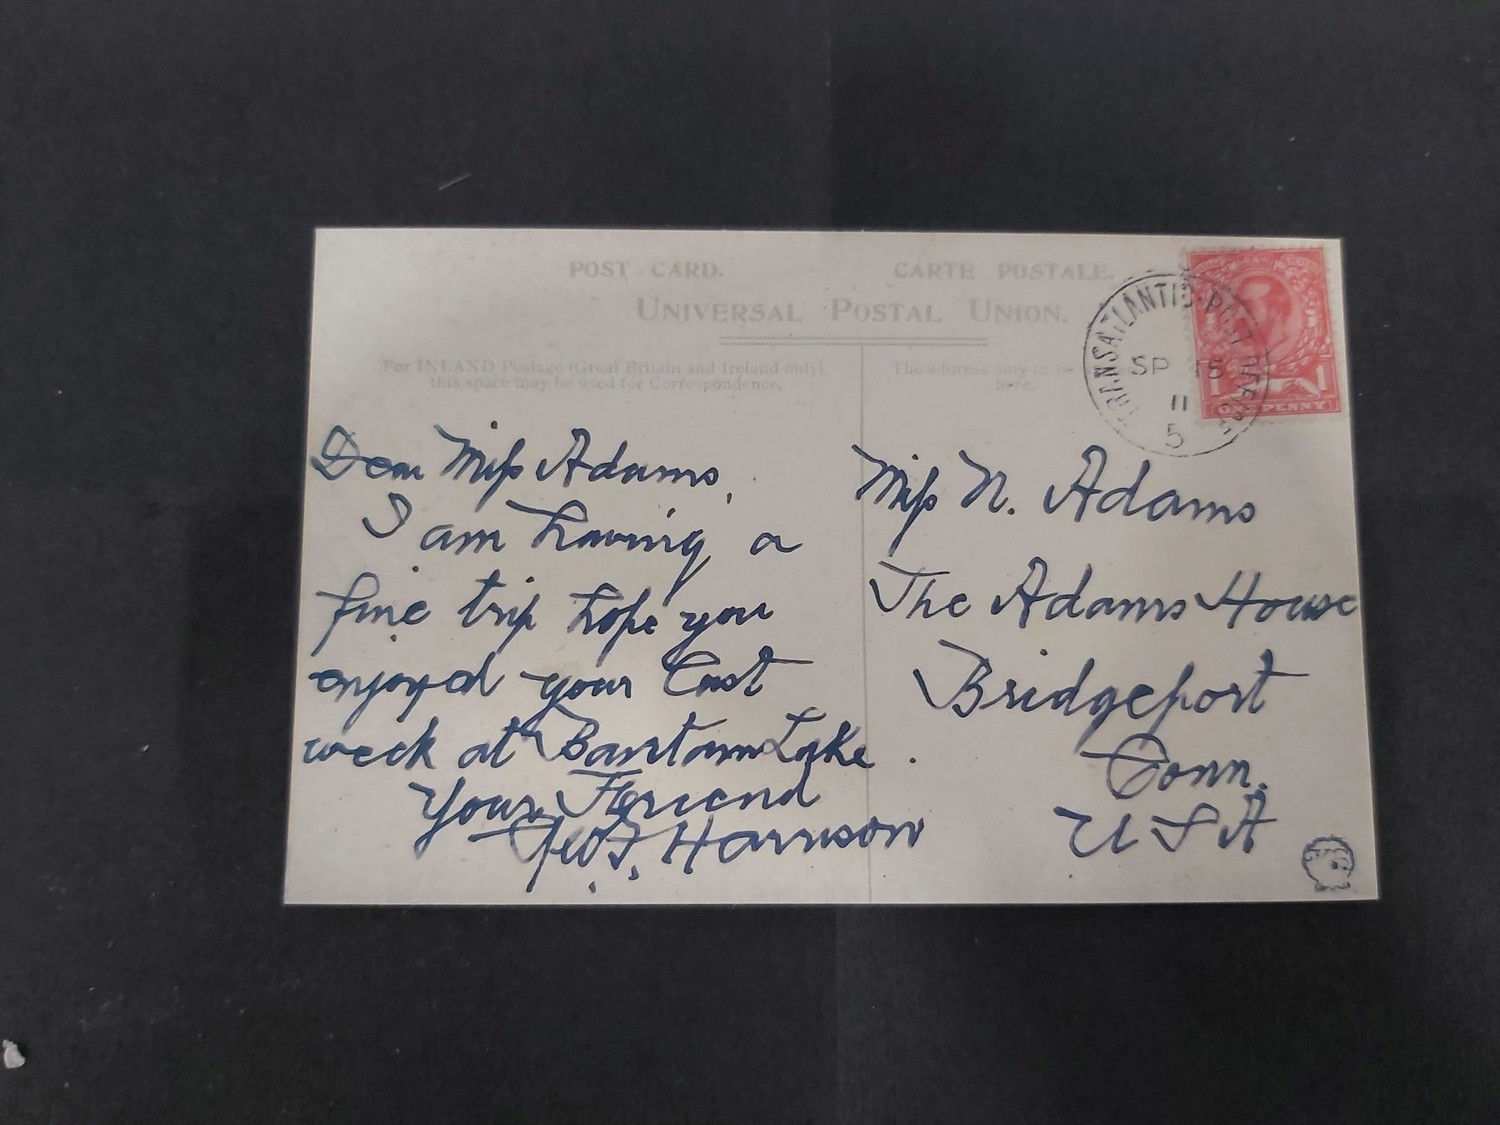 POST CARD. CARTE POSTALE.
UNIVERSAL POSTAL UNION.
For INLAND Postage (Great Britain and Ireland only),
this space may be used for Correspondence.
The address only to be
here.
TRANSATLANTIC POST OFFICE
SP 15
11
5
1 1
ONE PENNY
Dear Miss Adams,
I am having a
fine trip hope you
enjoyed your last
week at Bantam Lake.
Your Friend
Geo. F. Harrison
Miss N. Adams
The Adams House
Bridgeport
Conn.
USA